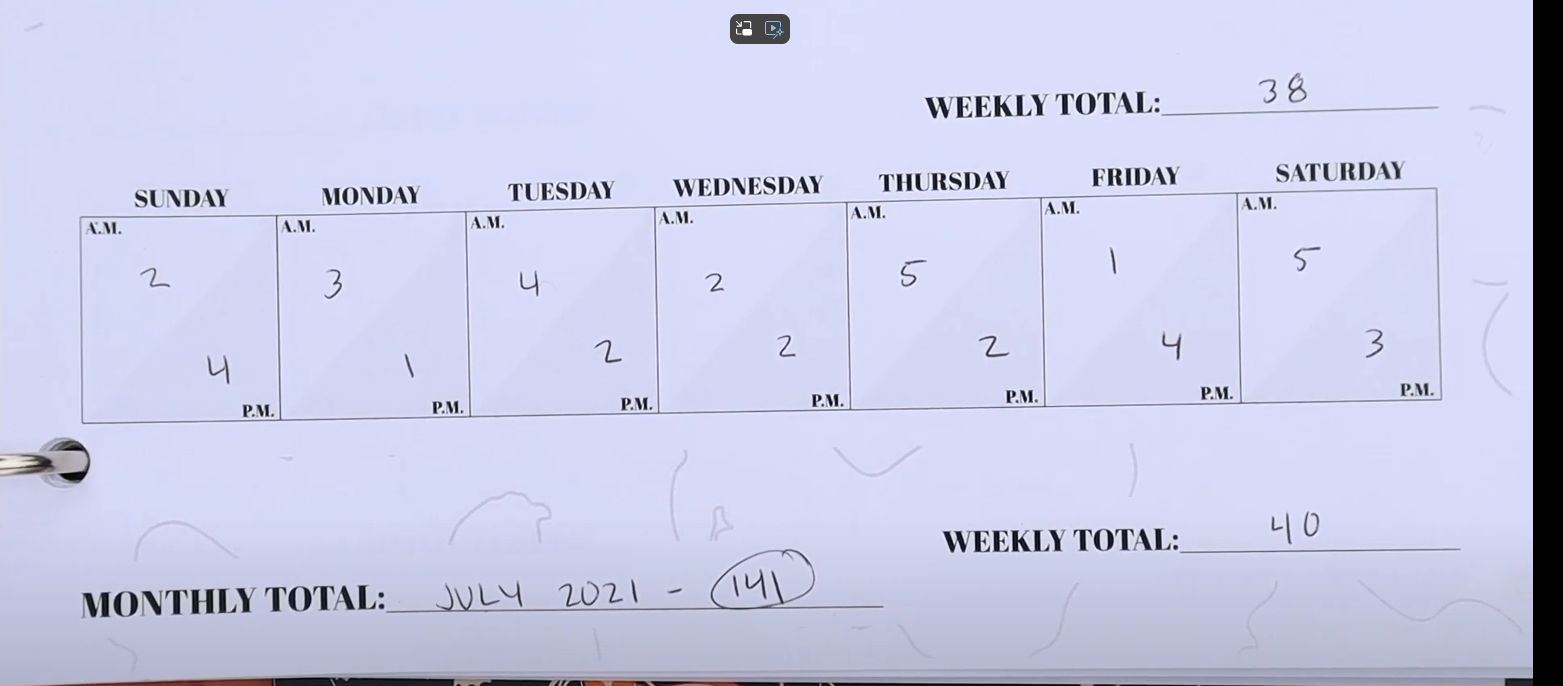 WEEKLY TOTAL: 38
SUNDAY MONDAY TUESDAY WEDNESDAY THURSDAY FRIDAY SATURDAY
A.M. A.M. A.M. A.M. A.M. A.M. A.M.
2 3 4 2 5 1 5
4 1 2 2 2 4 3
P.M. P.M. P.M. P.M. P.M. P.M. P.M.
WEEKLY TOTAL: 40
MONTHLY TOTAL: JULY 2021 - 141